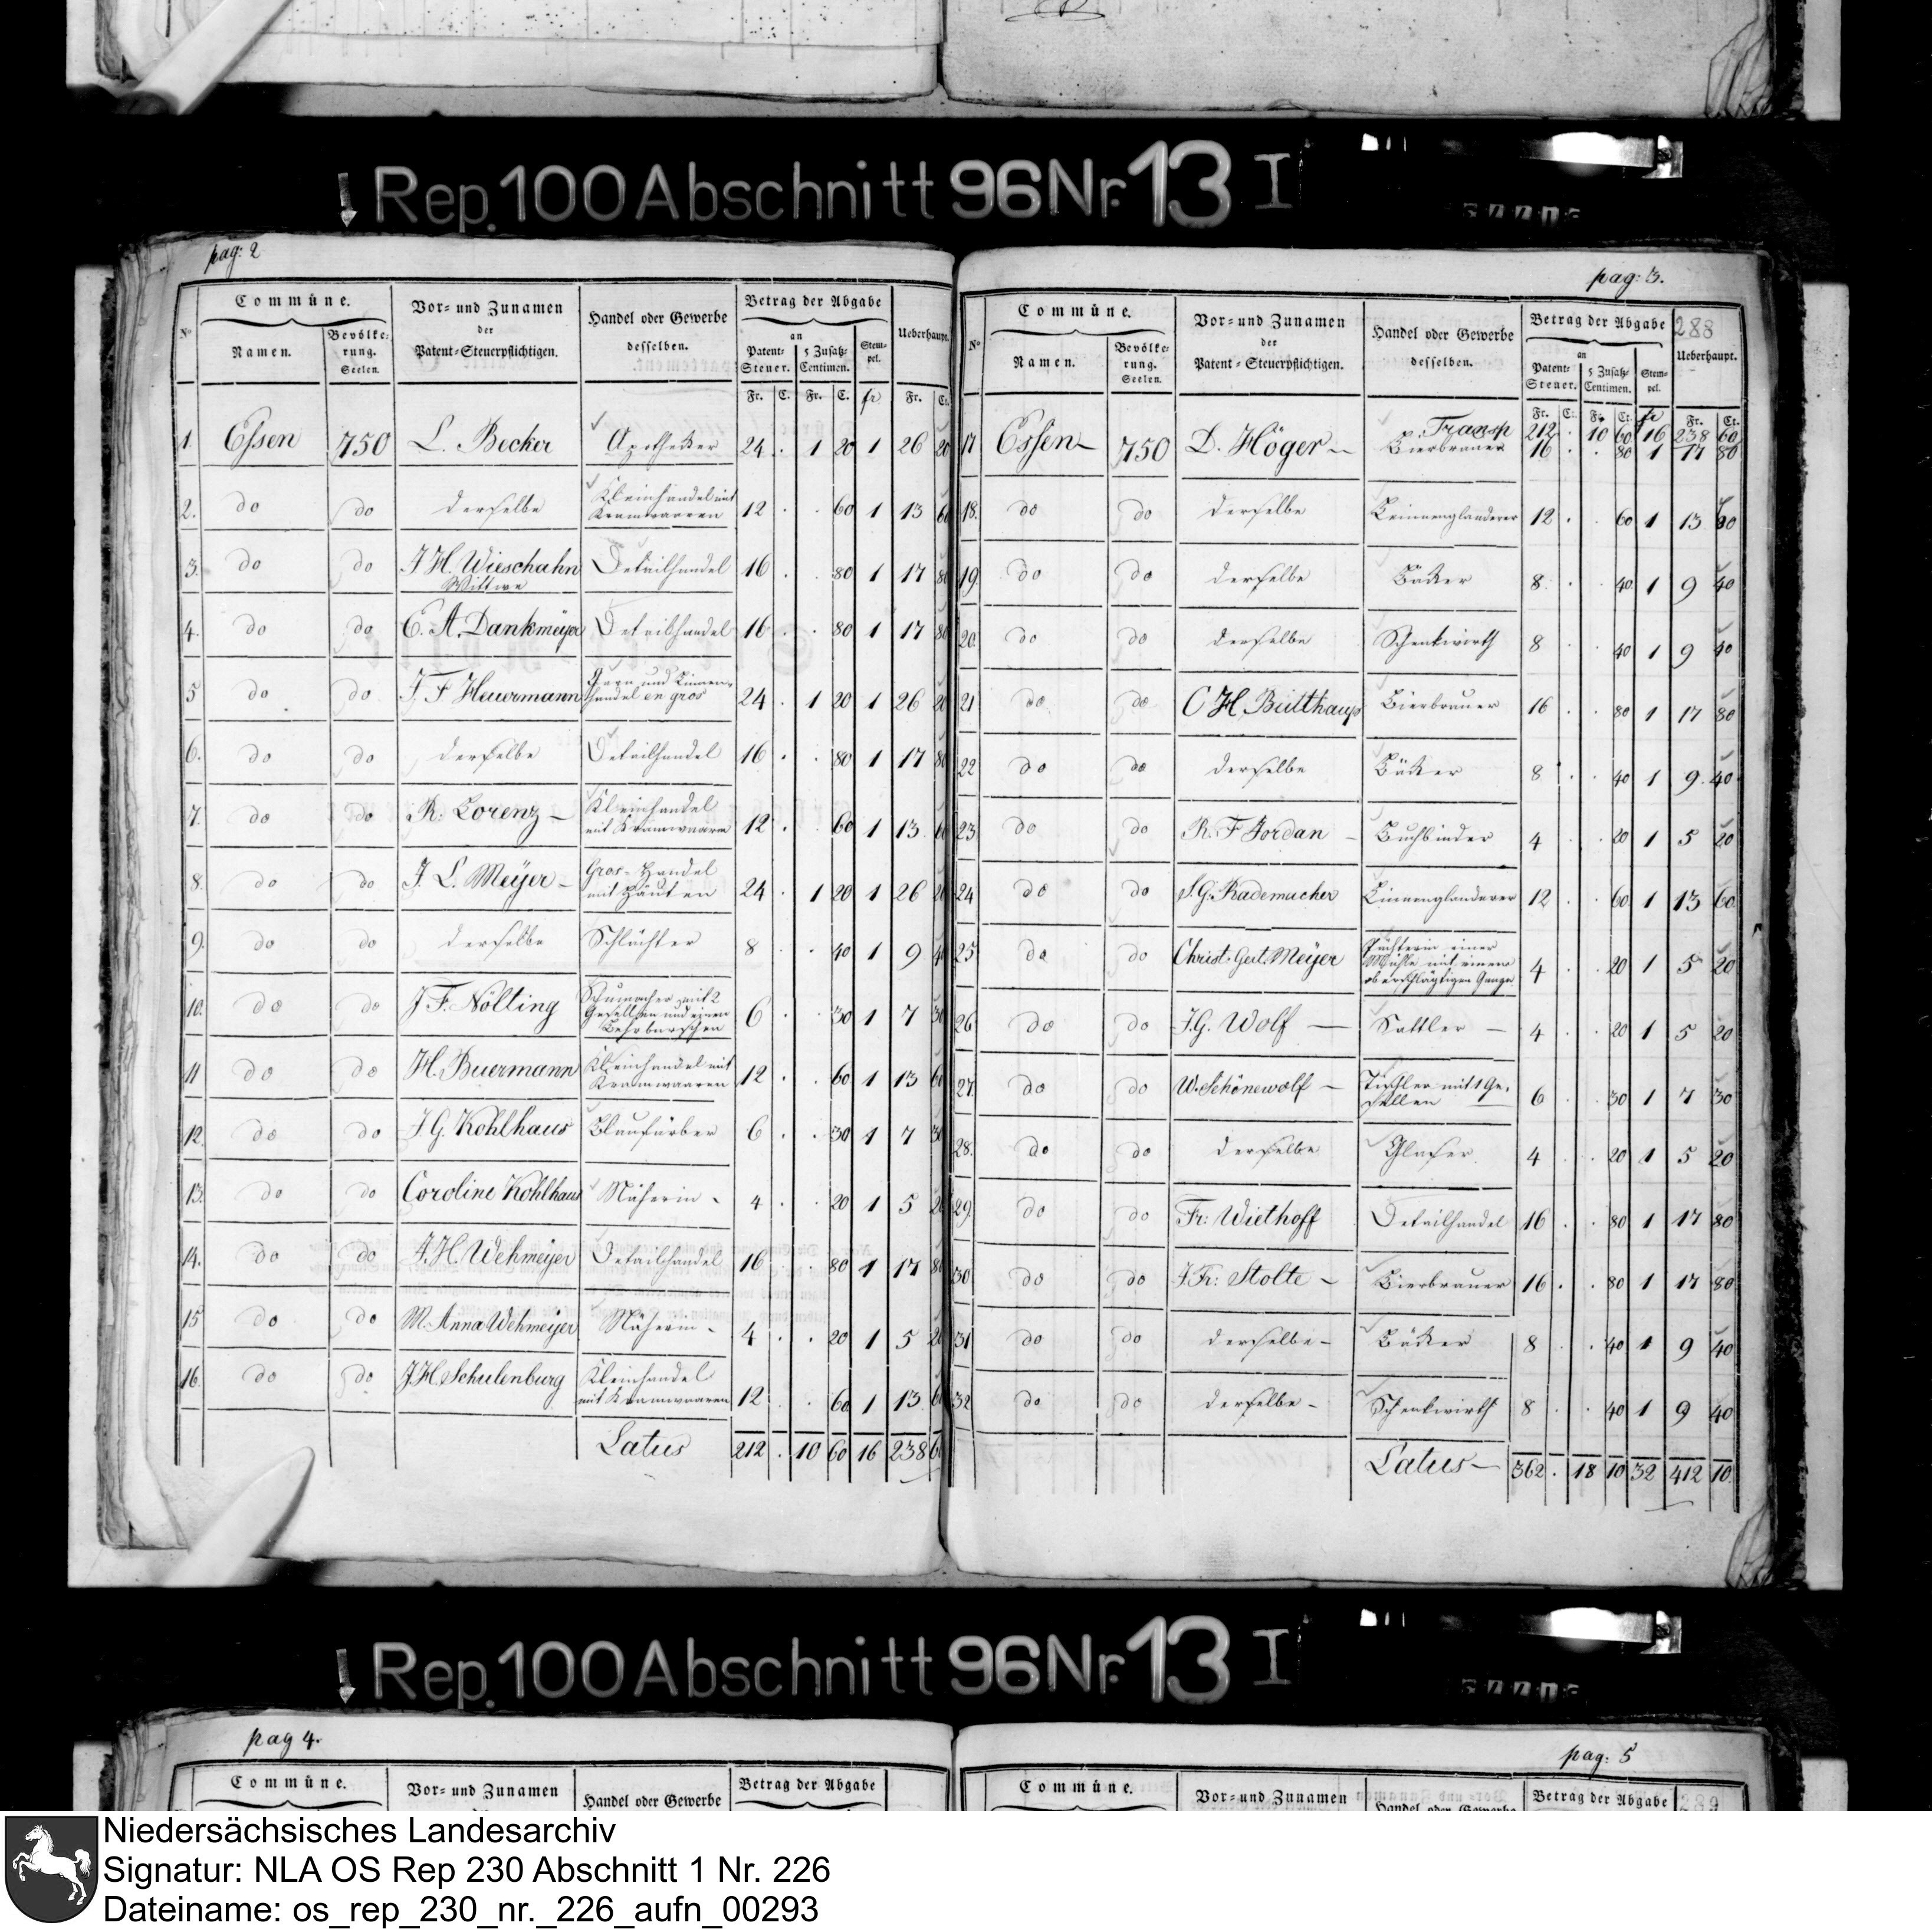 Rep. 100 Abschnitt 96 Nr. 13 I
pag: 2
No Commüne. Vor- und Zunamen der Patent-Steuerpflichtigen. Handel oder Gewerbe desselben. Betrag der Abgabe Ueberhaupt.
Namen. Bevölke- rung. Seelen. an Patent- Steuer. 5 Zusatz- Centimen. Stem- pel.
Fr. C. Fr. C. fr Fr. Ct.
1. Essen 750 L. Becker Apotheker 24 . 1 20 1 26 20
2. do do derselbe Kleinhandel mit Kramwaaren 12 . . 60 1 13 60
3. do do J H. Wieschahn Wittwe Detailhandel 16 . . 80 1 17 80
4. do do C. A. Dankmeyer Detailhandel 16 . . 80 1 17 80
5 do do J. F Heuermann Garn und Linnen- handel en gros 24 . 1 20 1 26 20
6. do do derselbe Detailhandel 16 . . 80 1 17 80
7. do do R. Lorenz – Kleinhandel mit Kramwaaren 12 . . 60 1 13 60
8. do do J. L. Meÿer – Gros-Handel mit Häuten 24 . 1 20 1 26 20
9. do do derselbe Schlächter 8 . . 40 1 9 40
10. do do J. F. Nölting Schumacher mit 2 Gesellen und einen Lehrburschen 6 . . 30 1 7 30
11 do do H. Buermann Kleinhandel mit Kramwaaren 12 . . 60 1 13 60
12. do do J. G. Kohlhaus Blaufärber 6 . . 30 1 7 30
13. do do Coroline Kohlhaus Näherin 4 . . 20 1 5 20
14. do do J. H. Wehmeÿer Detailhandel 16 . . 80 1 17 80
15 do do M. Anna Wehmeÿer Näherin 4 . . 20 1 5 20
16. do do J H Schulenburg Kleinhandel mit Kramwaaren 12 . . 60 1 13 60
Latus 212 . 10 60 16 238 60
pag: 3.
288
No Commüne. Vor- und Zunamen der Patent-Steuerpflichtigen. Handel oder Gewerbe desselben. Betrag der Abgabe Ueberhaupt.
Namen. Bevölke- rung. Seelen. an Patent- Steuer. 5 Zusatz- Centimen. Stem- pel.
Fr. Ct. Fr. Ct. fr Fr. Ct.
Transp 212 . 10 60 16 238 60
17 Essen – 750 D. Höger – Bierbrauer 16 . . 80 1 17 80
18. do do derselbe Leinnenglanderer 12 . . 60 1 13 60
19 do do derselbe Bäcker 8 . . 40 1 9 40
20. do do derselbe Schenkwirth 8 . . 40 1 9 40
21 do do C H. Bülthaup Bierbrauer 16 . . 80 1 17 80
22 do do derselbe Bäcker 8 . . 40 1 9. 40
23 do do R. F Jordan – Buchbinder 4 . . 20 1 5 20
24 do do S. G. Rademacher Linnenglanderer 12 . . 60 1 13 60
25 do do Christ. Gert. Meÿer Pächterin einer Mühle mit einem oberschlägtigen Gange 4 . . 20 1 5 20
26 do do J. G. Wolf — Sattler – 4 . . 20 1 5 20
27. do do W. Schönewolf – Tischler mit 1 Ge- sellen 6 . . 30 1 7 30
28. do do derselbe Glaser 4 . . 20 1 5 20
29 do do Fr: Wiethoff Detailhandel 16 . . 80 1 17 80
30 do do J. Fr: Stolte – Bierbrauer 16 . . 80 1 17 80
31 do do derselbe – Bäcker 8 . . 40 1 9 40
32 do do derselbe – Schenkwirth 8 . . 40 1 9 40
Latus – 362 . 18 10 32 412 10.
Rep. 100 Abschnitt 96 Nr. 13 I
pag 4.
Commüne. Vor- und Zunamen Handel oder Gewerbe Betrag der Abgabe
pag: 5
Commüne. Vor- und Zunamen Handel oder Gewerbe Betrag der Abgabe 289
Niedersächsisches Landesarchiv
Signatur: NLA OS Rep 230 Abschnitt 1 Nr. 226
Dateiname: os_rep_230_nr._226_aufn_00293